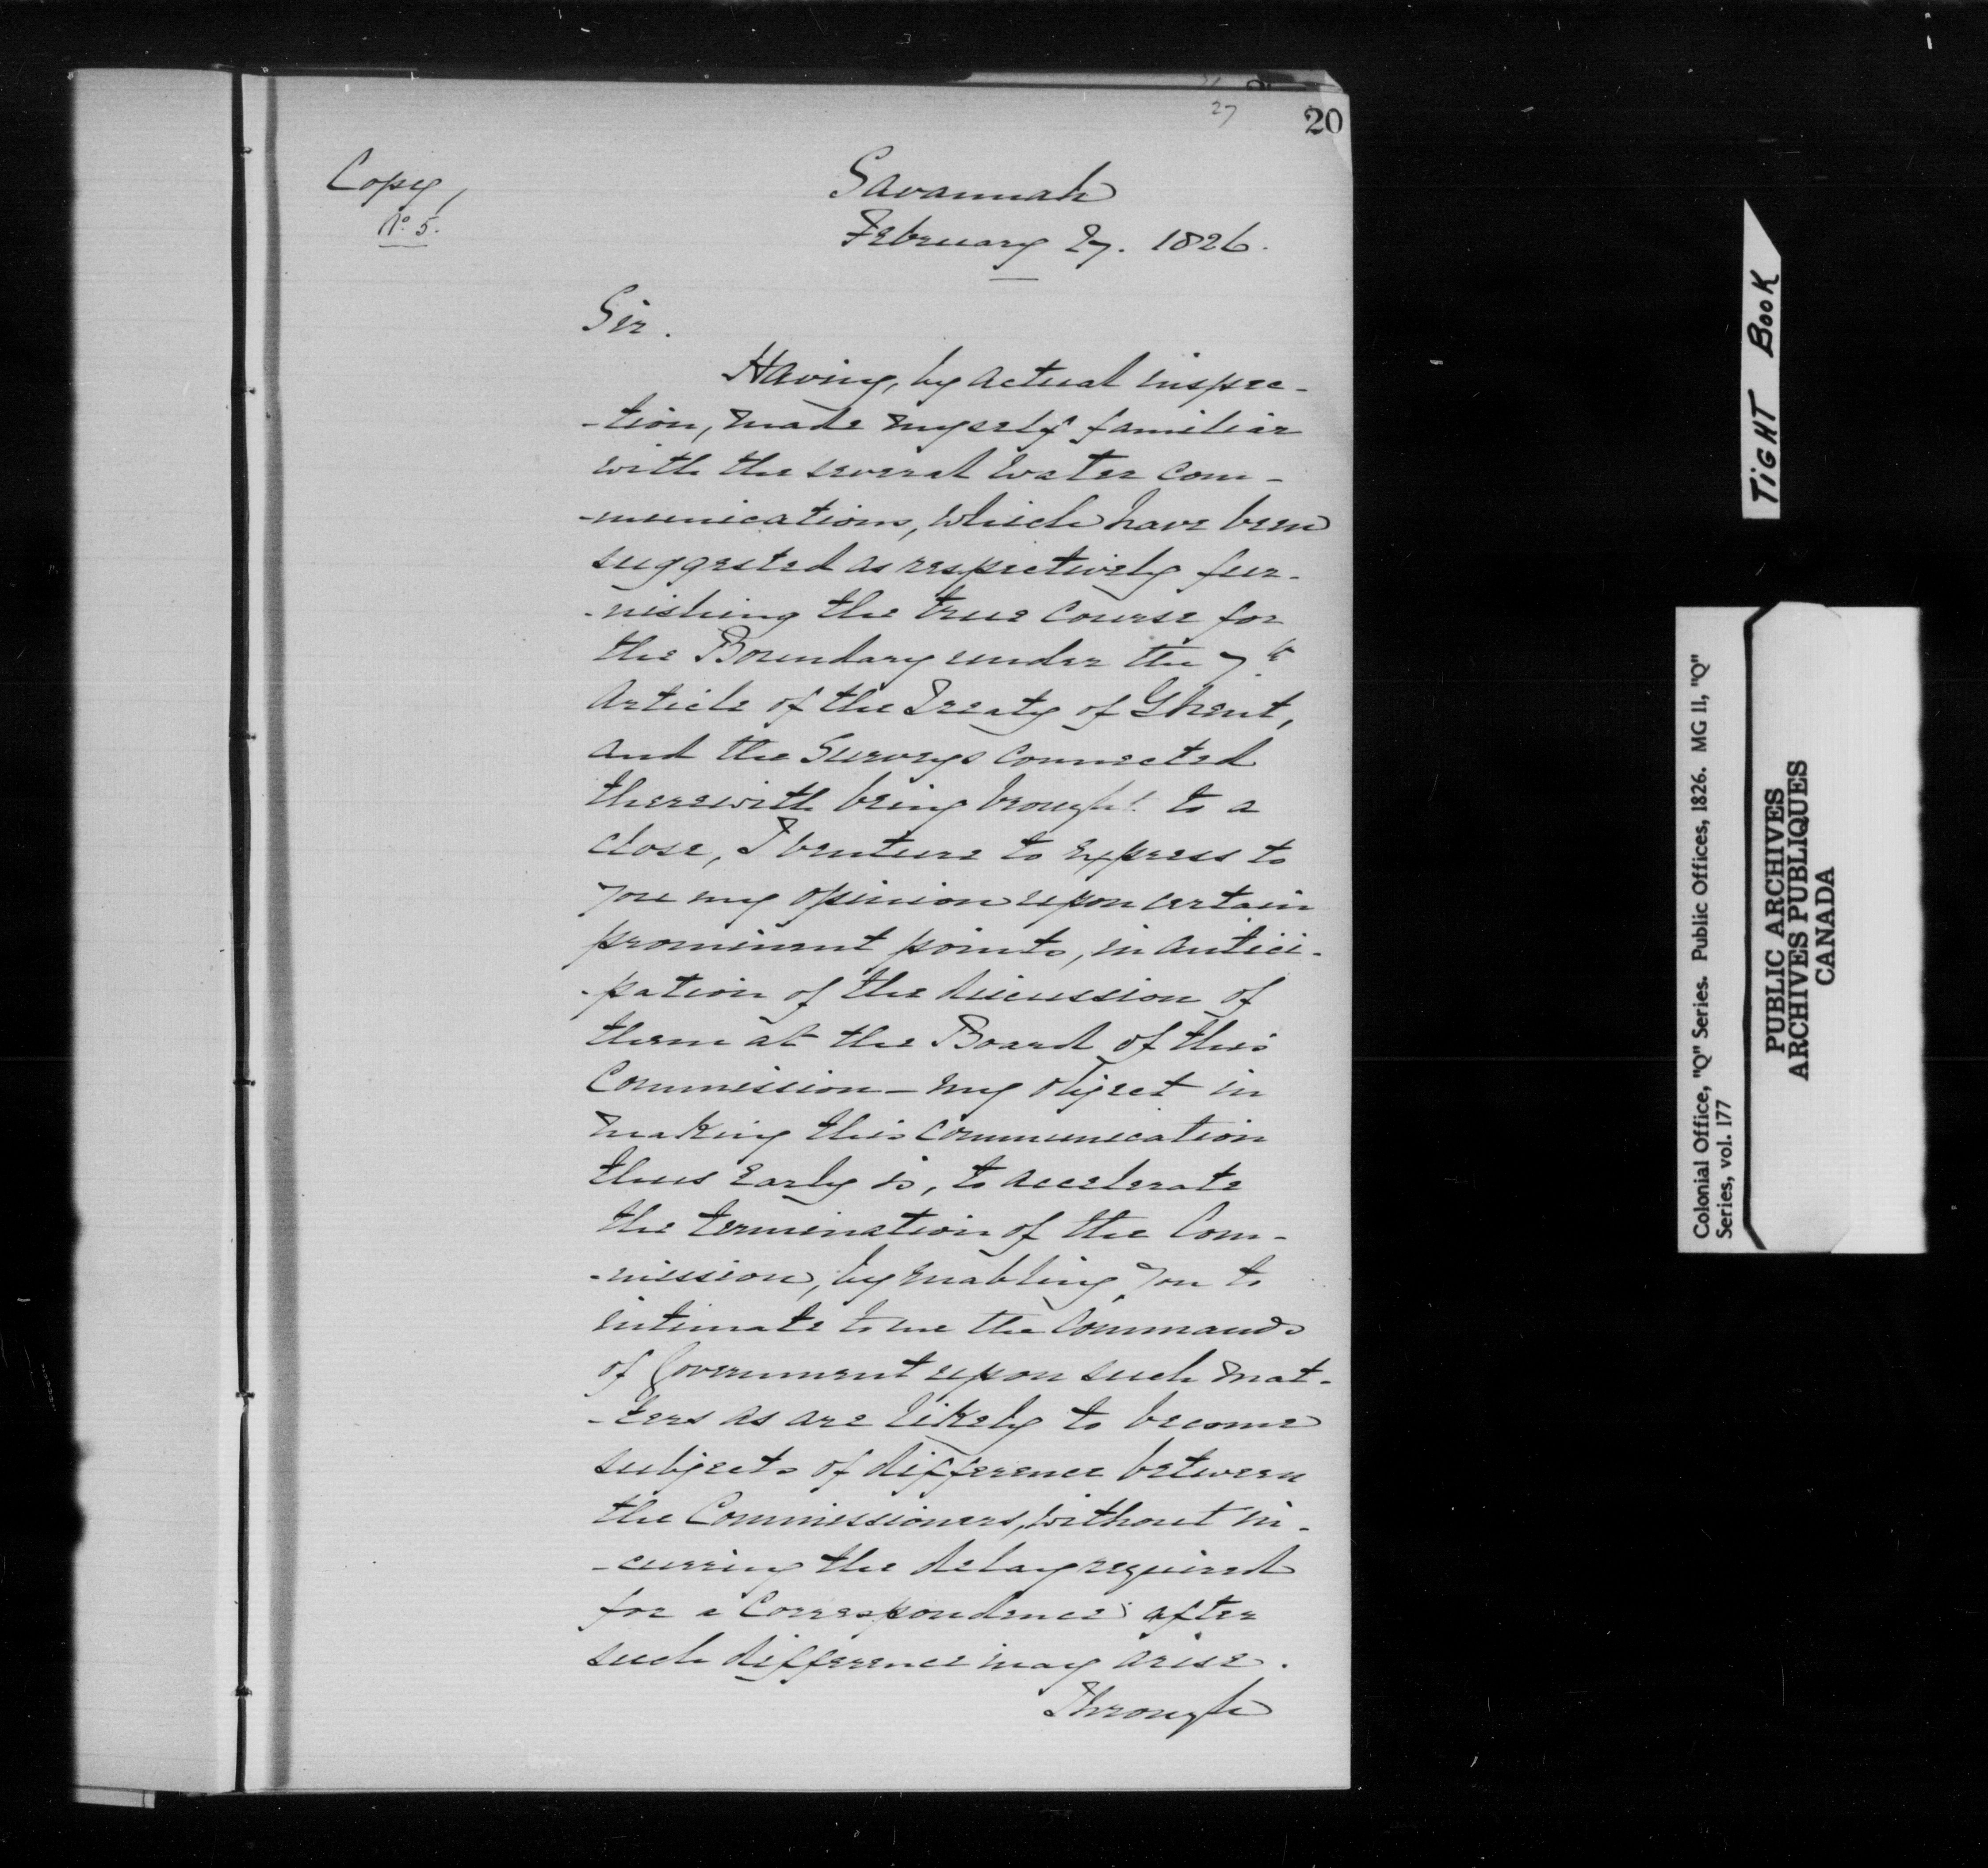 27
20
Copy,
No. 5.
Savannah
February 27. 1826.
Sir.
Having, by actual inspec-
-tion, made myself familiar
with the several water com-
-munications, which have been
suggested as respectively fur-
-nishing the true course for
the Boundary under the 7th
Article of the Treaty of Ghent,
and the Surveys connected
therewith being brought to a
close, I venture to express to
you my opinion upon certain
prominent points, in antici-
-pation of the discussion of
them at the Board of this
Commission - my object in
making this communication
thus early is, to accelerate
the termination of the Com-
-mission, by enabling you to
intimate to me the Commands
of Government upon such mat-
-ters as are likely to become
subjects of difference between
the Commissioners, without in-
-curring the delay required
for a Correspondence after
such difference may arise.
Through
TIGHT BOOK
Colonial Office, "Q" Series. Public Offices, 1826. MG 11, "Q"
Series, vol. 177
PUBLIC ARCHIVES
ARCHIVES PUBLIQUES
CANADA